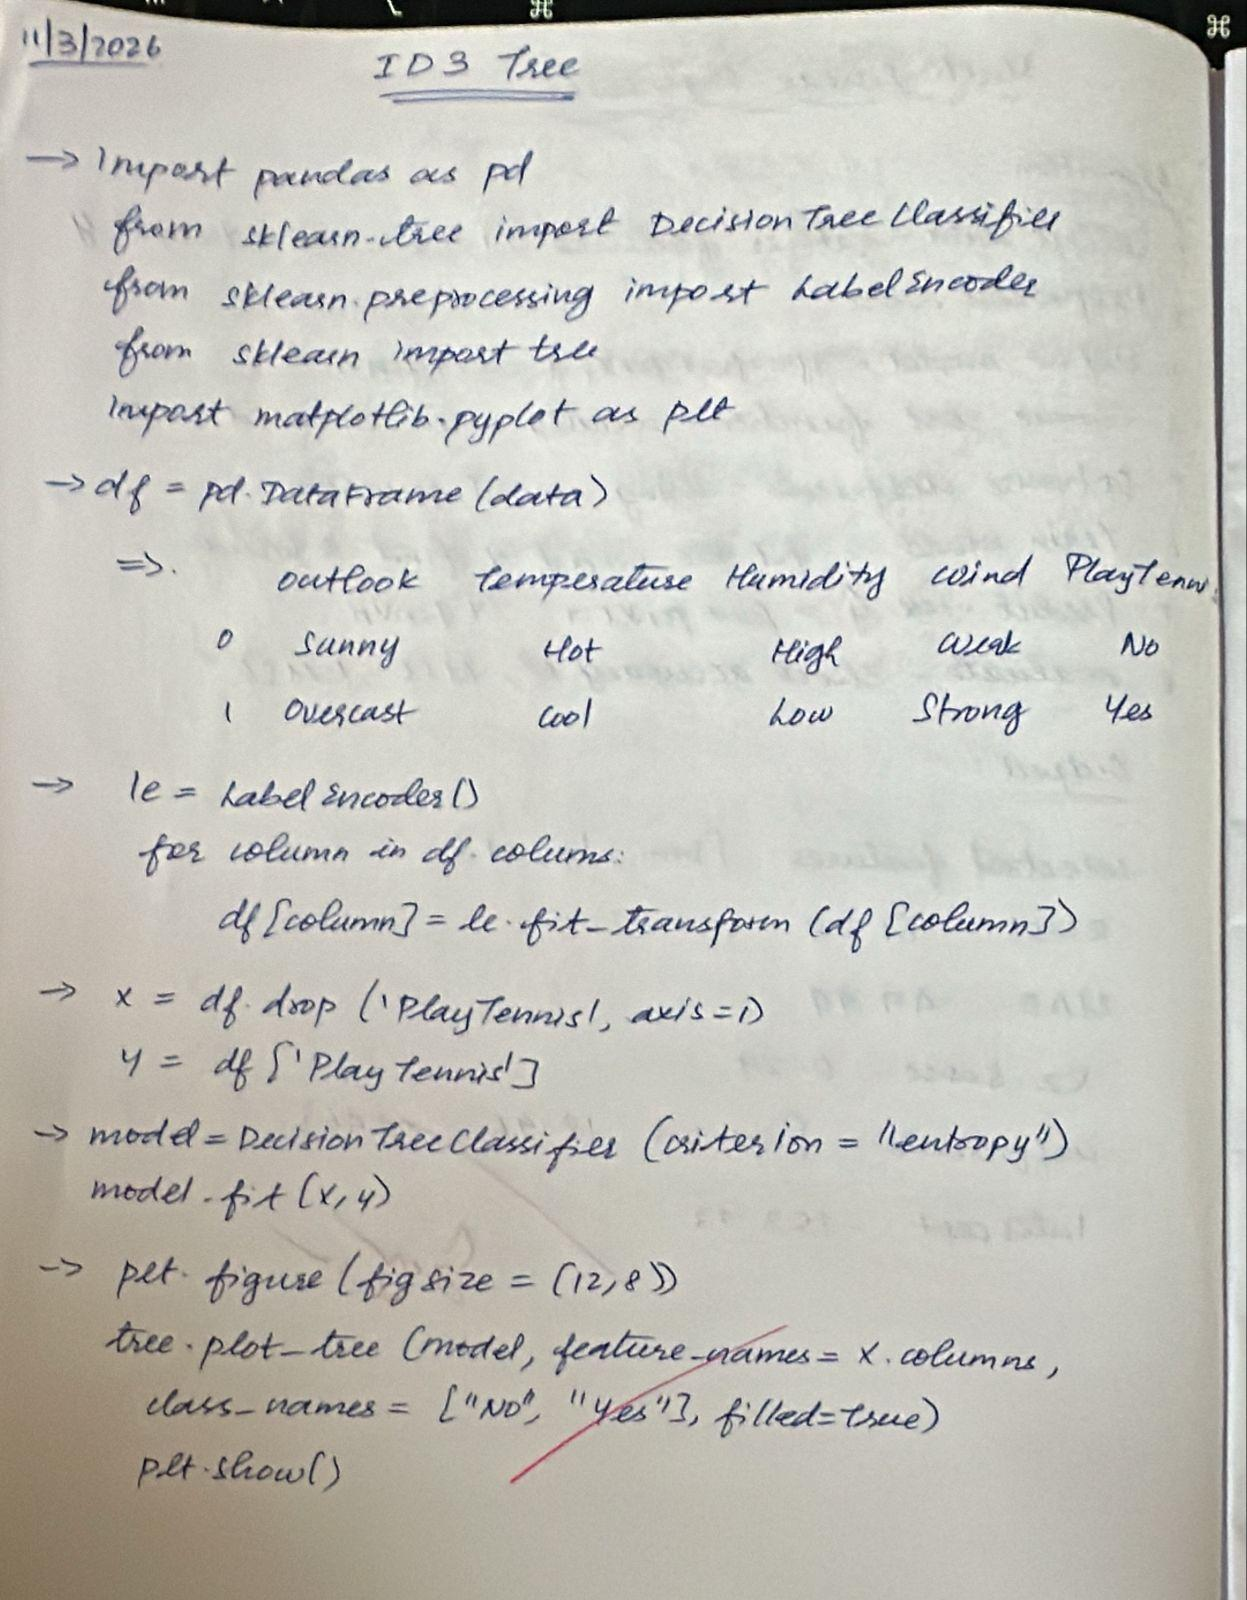 11/3/2026
ID3 Tree
→ Import pandas as pd
from sklearn.tree import DecisionTreeClassifier
from sklearn.preprocessing import LabelEncoder
from sklearn import tree
import matplotlib.pyplot as plt
→ df = pd.DataFrame (data)
⇒. outlook Temperature Humidity wind PlayTennis
0 Sunny Hot High Weak No
1 Overcast Cool Low Strong Yes
→ le = LabelEncoder()
for column in df.colums:
df[column] = le.fit_transform (df [column])
→ x = df.drop ('PlayTennis', axis=1)
y = df ['PlayTennis']
→ model = DecisionTreeClassifier (criterion = "entropy")
model.fit (x, y)
→ plt.figure (figsize = (12,8))
tree.plot_tree (model, feature_names = x.columns,
class_names = ["No", "Yes"], filled=true)
plt.show()